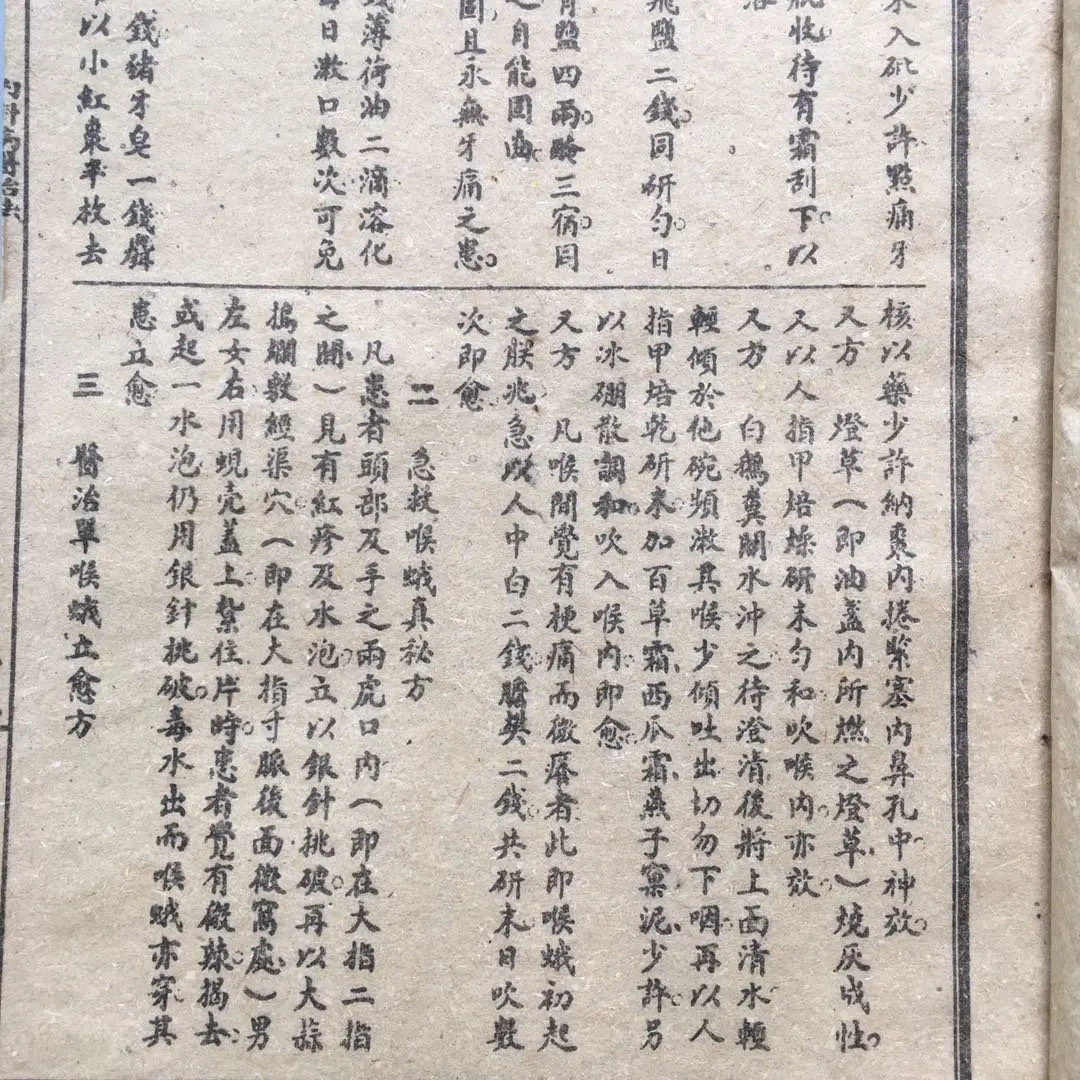 末入砒少許點痛牙
瓶收待有霜刮下以
飛鹽二錢同研勻日
青鹽四兩醃三宿同
之自能固齒
固且永無牙痛之患
錢薄荷油二滴溶化
日漱口數次可免
錢豬牙皂一錢
以小紅棗半枚去
核以藥少許納棗內捲緊塞內鼻孔中神效
又方　燈草（即油盞內所燃之燈草）燒灰成性
又以人指甲焙燥研末勻和吹喉內亦效
又方　白鵝糞開水沖之待澄清後將上面清水輕
輕傾於他碗頻漱其喉少傾吐出切勿下咽再以人
指甲焙乾研末加百草霜西瓜霜燕子窠泥少許另
以冰硼散調和吹入喉內即愈
又方　凡喉間覺有梗痛而微癢者此即喉蛾初起
之朕兆急以人中白二錢膽礬二錢共研末日吹數
次即愈
二　急救喉蛾真秘方
凡患者頭部及手之兩虎口內（即在大指二指
之間）見有紅疹及水泡立以銀針挑破再以大蒜
搗爛敷經渠穴（即在大指寸脈後面微窩處）男
左女右用蜆壳蓋上紮住片時患者覺有微辣揭去
或起一水泡仍用銀針挑破毒水出而喉蛾亦穿其
患立愈
三　醫治單喉蛾立愈方